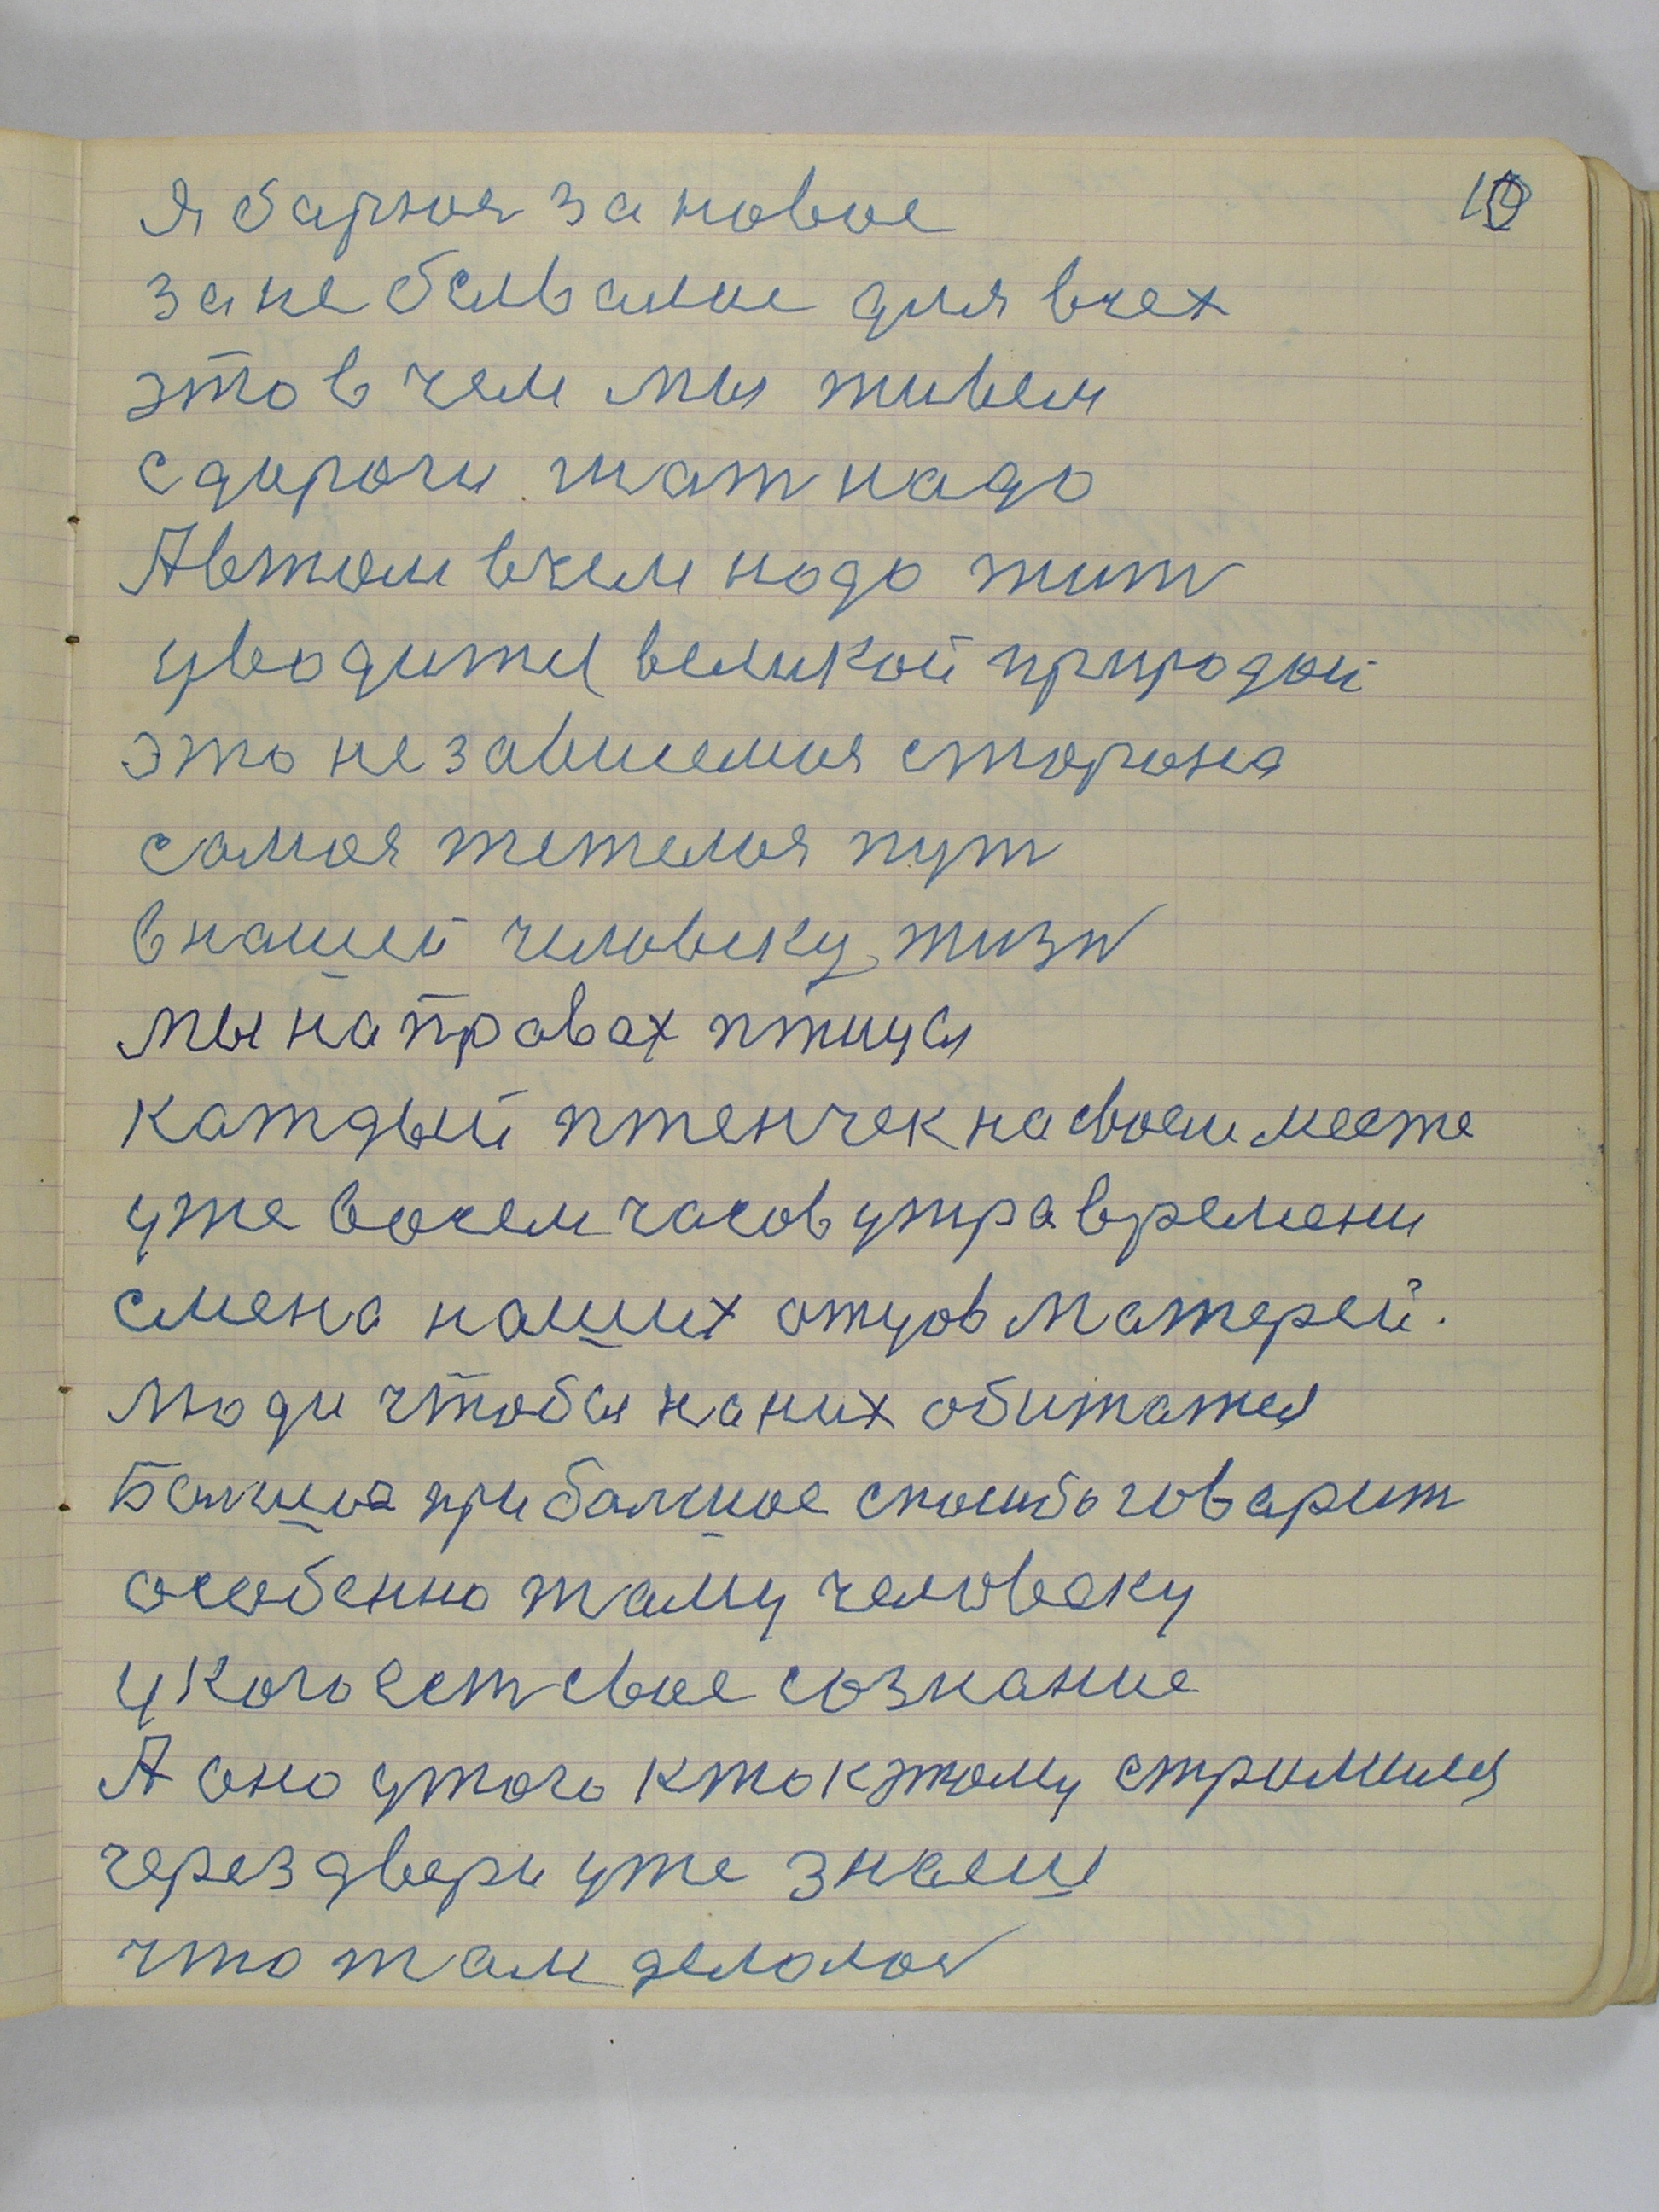 я барюся за новое
за небывалые для всех
это в чем мы живем
с дороги тат надо
А в том в чем надо жит
уводится великой природой
это независемия сторона
самоя тежелоя пут
в нашей человеку жизн
мы на правах птицы
каждый птенчек на своем месте
уже восем часов утра времени
смена наших отцов матерей.
люди чтобы на них обитатся
Болшое прибалшое спосибо говарит
особенно тому человеку
у кого ест свое сознание
А оно у того кто к этому стримился
через двери уже знаеш
что там делолос